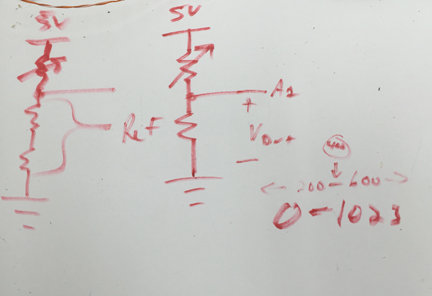 5V
5V
A2
Ref
+
Vout
-
400
200 - 600
0-1023